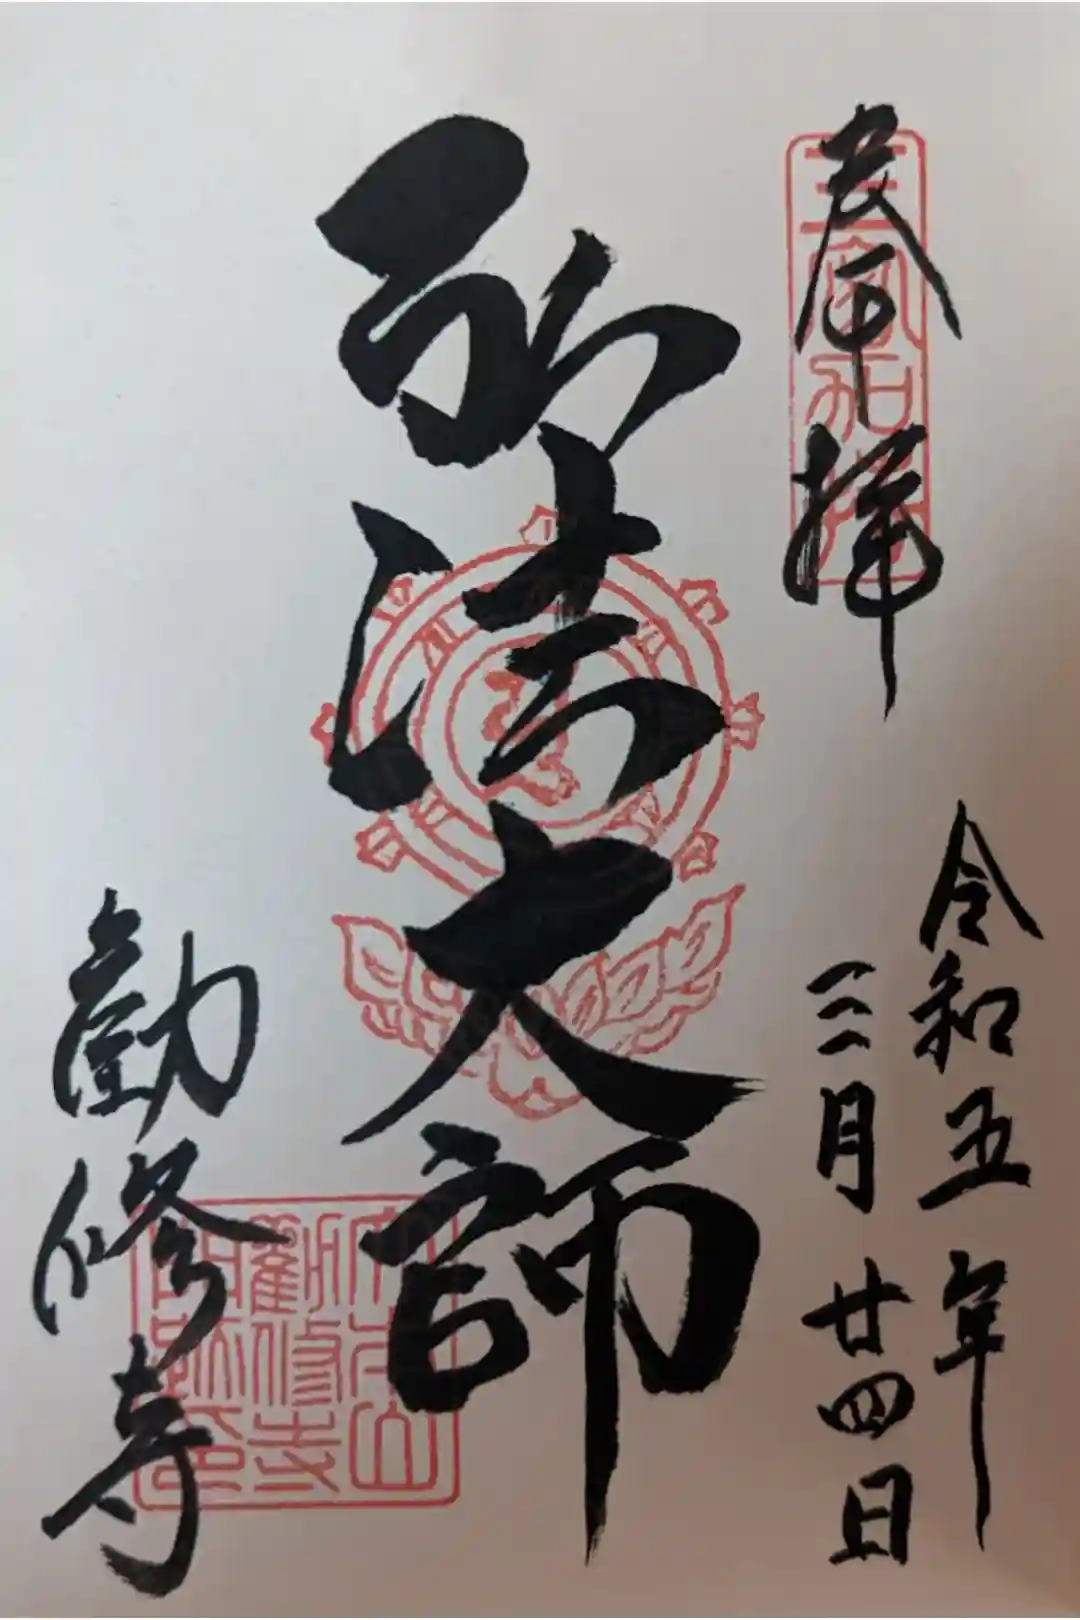 奉拝
三密加持
令和五年
三月廿四日
弘法大師
勧修寺